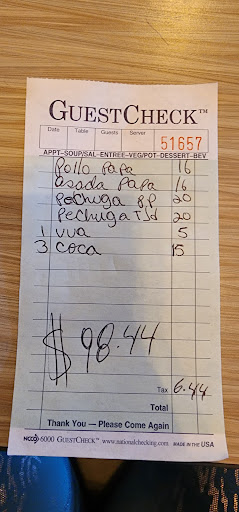 GUESTCHECK™
Date Table Guests Server
51657
APPT-SOUP/SAL-ENTREE-VEG/POT-DESSERT-BEV
Pollo Papa 16
asada Papa 16
Pechuga B.P 20
Pechuga T Jd 20
1 uva 5
3 coca 15
$98.44
Tax 6.44
Total
Thank You — Please Come Again
NCCO 6000 GUESTCHECK™ www.nationalchecking.com MADE IN THE USA